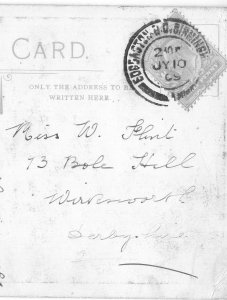 CARD.
ONLY THE ADDRESS TO BE
WRITTEN HERE.
JY 10
Miss W. Flint
73 Bole Hill
Wirksworth
Derbyshire